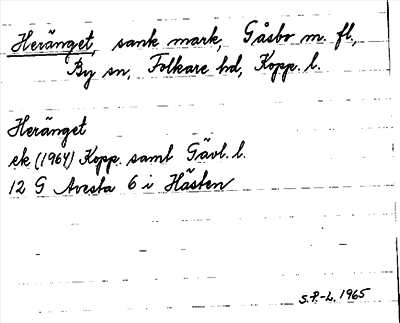 Heränget, sank mark, Gåsbo m. fl.,
By sn, Folkare hd, Kopp. l.
Heränget
ek. (1964) Kopp. samt Gävl. l.
12 G Avesta 6 i Hästen
S.P.-L. 1965